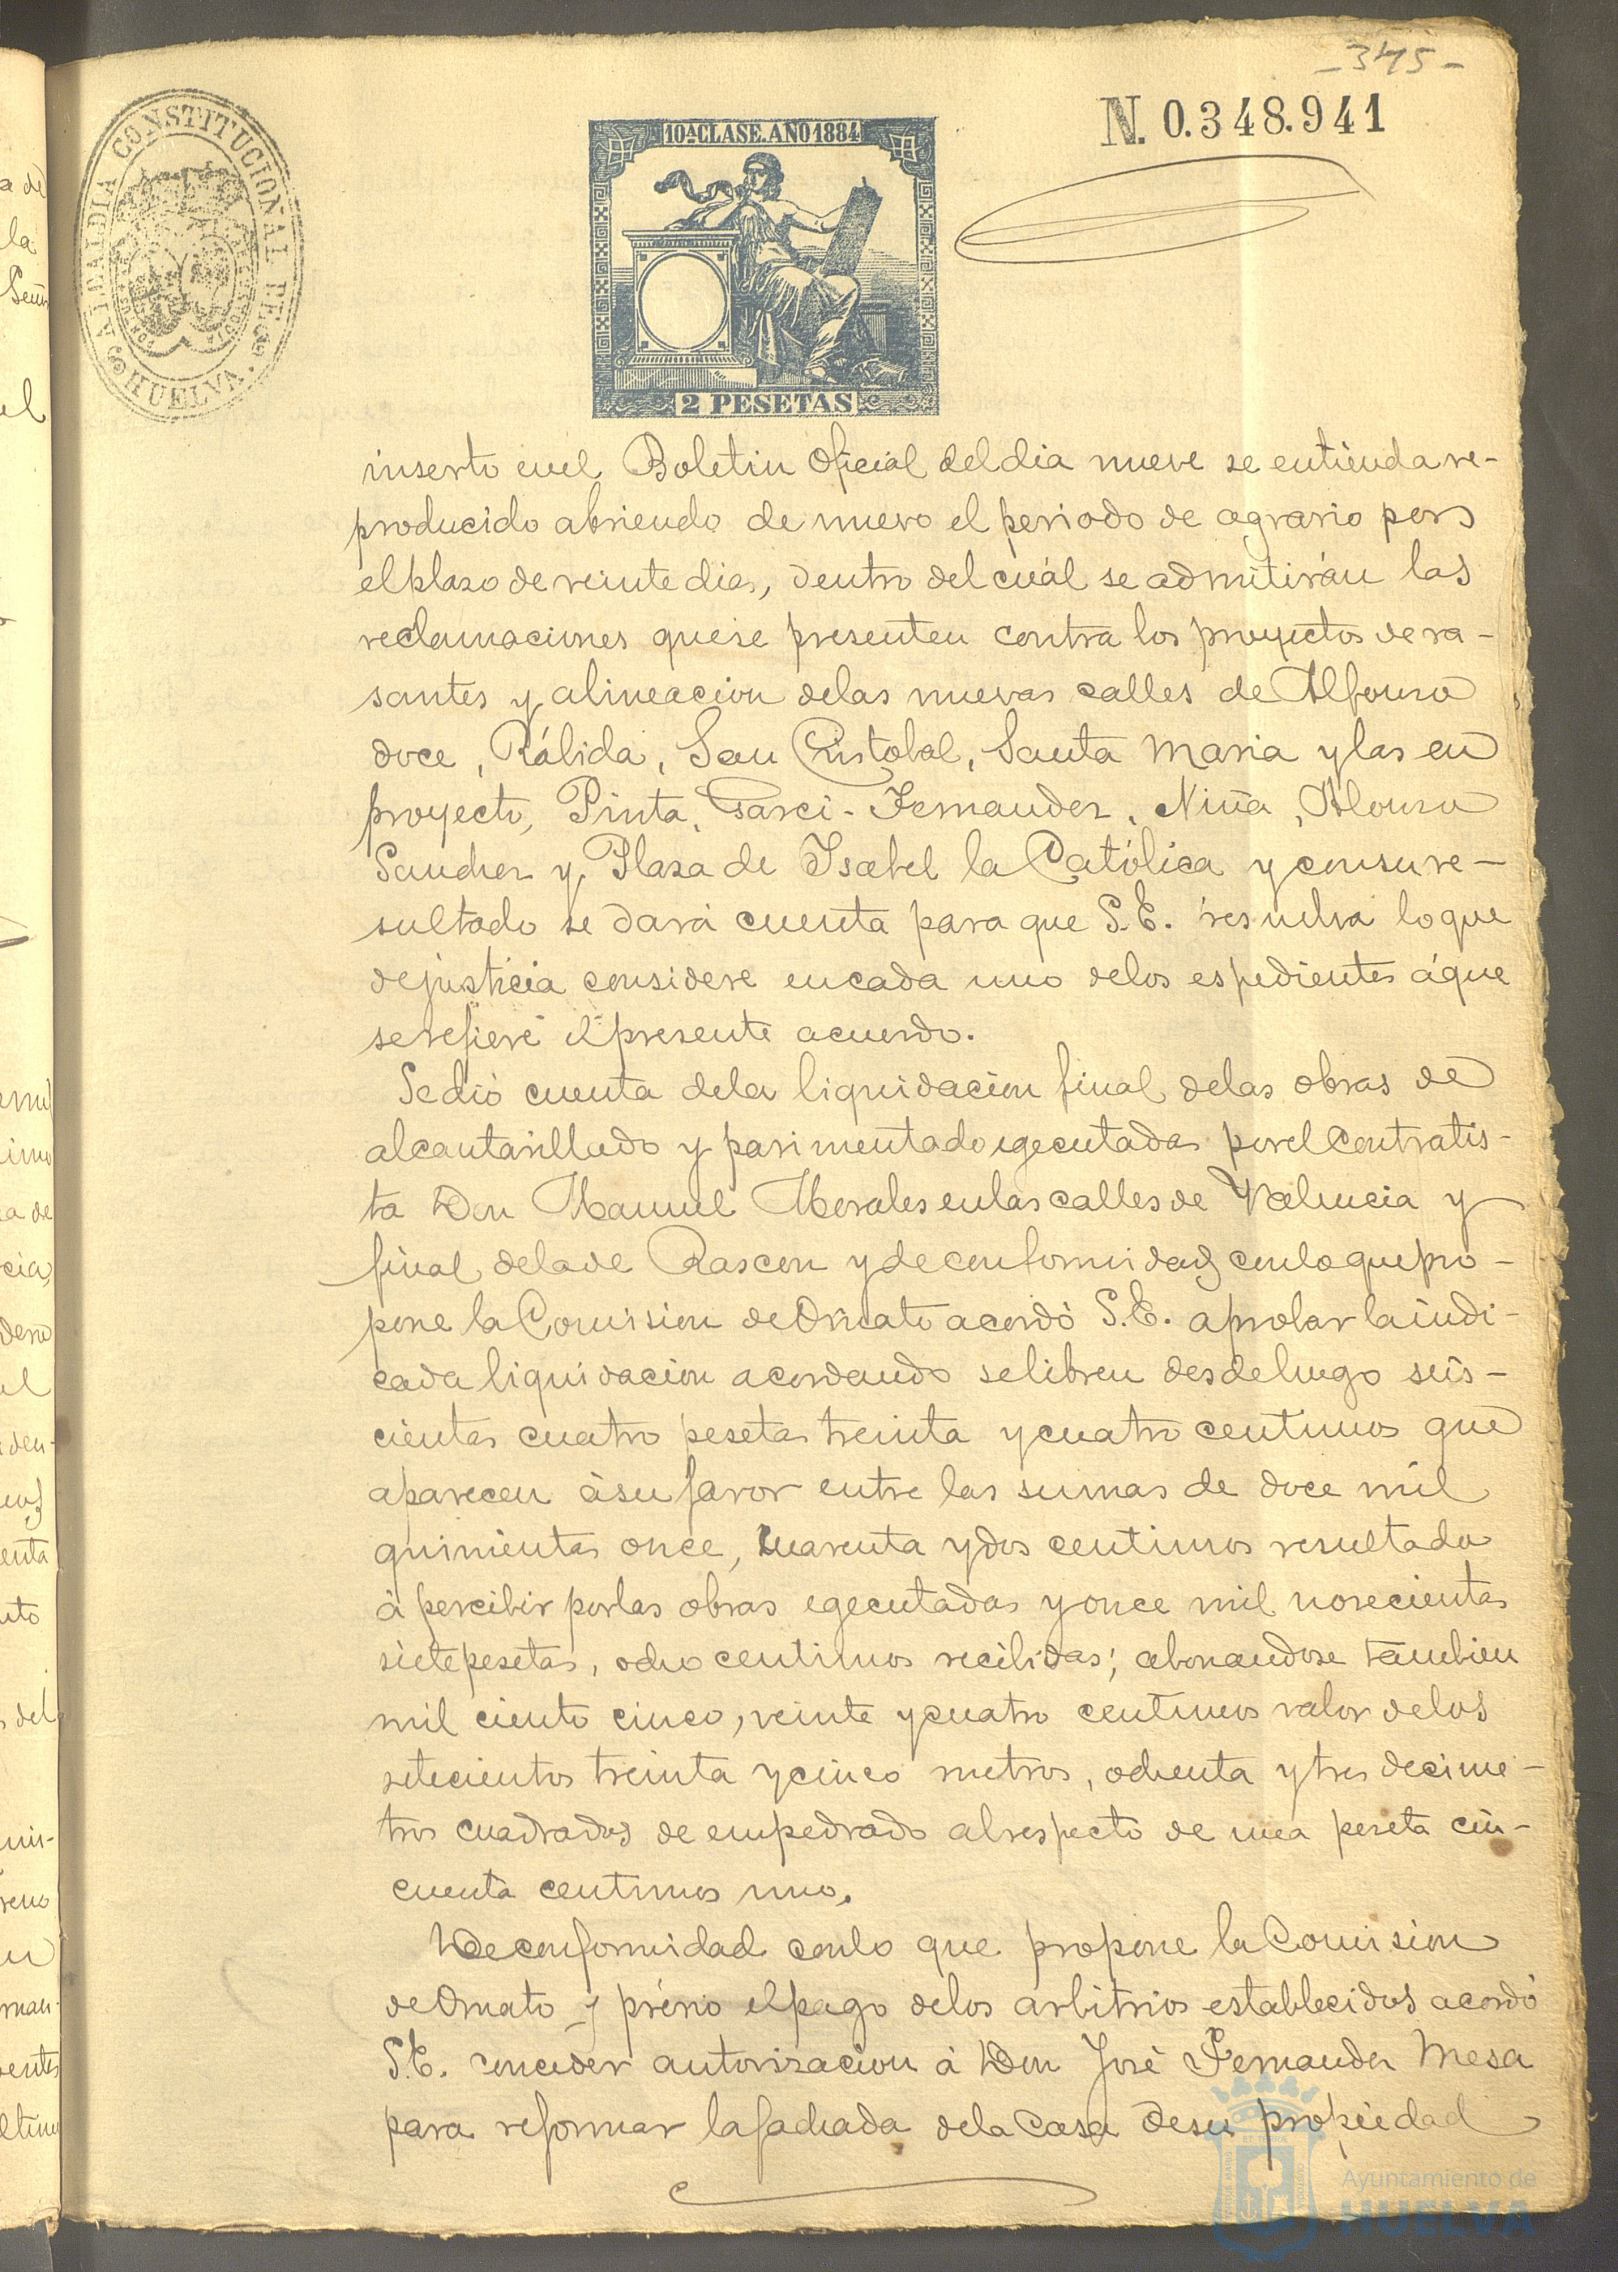 -345-
N. 0.348.941
ALCALDIA CONSTITUCIONAL DE
HUELVA
10ª CLASE. AÑO 1884
2 PESETAS
inserto en el Boletin Oficial del dia nueve se entienda re-
producido abriendo de nuevo el periodo de agravio por
el plazo de veinte dias, dentro del cuál se admitirán las
reclamaciones que se presenten contra los proyectos de ra-
santes y alineacion de las nuevas calles de Alfonso
doce, Rábida, San Cristobal, Santa Maria y las en
proyecto, Pinta, Garci-Fernandez, Niña, Alonso
Sanchez y Plaza de Isabel la Católica y con su re-
sultado se dará cuenta para que S.E. resuelva lo que
de justicia considere en cada uno de los espedientes á que
se refiere el presente acuerdo.
Se dió cuenta de la liquidacion final de las obras de
alcantarillado y pavimentado egecutadas por el Contratis-
ta Don Manuel Morales en las calles de Valencia y
final de la de Rascon y de conformidad con lo que pro-
pone la Comision de Ornato acordó S.E. aprobar la indi-
cada liquidacion acordando se libren desde luego seis-
cientas cuatro pesetas treinta y cuatro centimos que
aparecen á su favor entre las sumas de doce mil
quinientas once, cuarenta y dos centimos resultado
á percibir por las obras egecutadas y once mil novecientas
siete pesetas, ocho centimos recibidas; abonandose tambien
mil ciento cinco, veinte y cuatro centimos valor de los
setecientos treinta y cinco metros, ochenta y tres decime-
tros cuadrados de empedrado al respecto de una peseta cin-
cuenta centimos uno.
De conformidad con lo que propone la Comision
de Ornato y prévio el pago de los arbitrios establecidos acordó
S.E. conceder autorizacion á Don José Fernandez Mesa
para reformar la fachada de la Casa de su propiedad
Ayuntamiento de
HUELVA